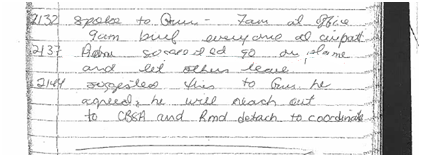 2132 spoke to Gus - 7am at office
9am brief everyone at airport
2137 Adam so scared go on plane
and let others leave
2144 suggested this to Gus he
agreed, he will reach out
to CBSA and Rmd detach to coordinate